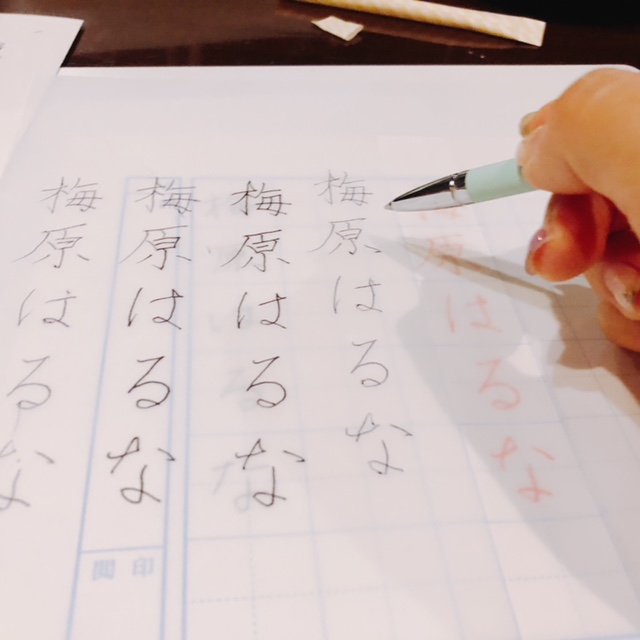 梅原はるな
梅原はるな
梅原はるな
梅原はるな
梅原はるな